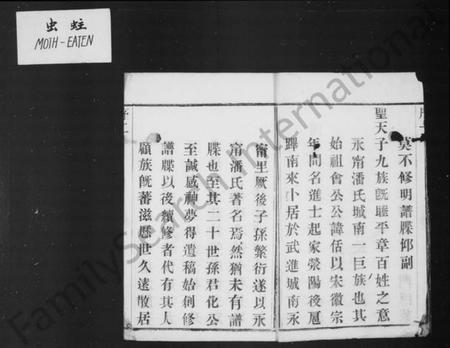 虫蛀
MOTH-EATEN
莫不修明譜牒仰副
聖天子九族既睦平章百姓之意
永甯潘氏城南一巨族也其
始祖會公公諱佸以宋徽宗
年間名進士起家滎陽後扈
蹕南來卜居於武進城南永
甯里厥後子孫繁衍遂以永
甯潘氏著名焉然猶未有譜
牒也至其二十世孫君化公
至誠感神夢得遺稿始創修
譜牒以後續修者代有其人
顧族既蕃滋歷世久遠散居
FamilySearch International